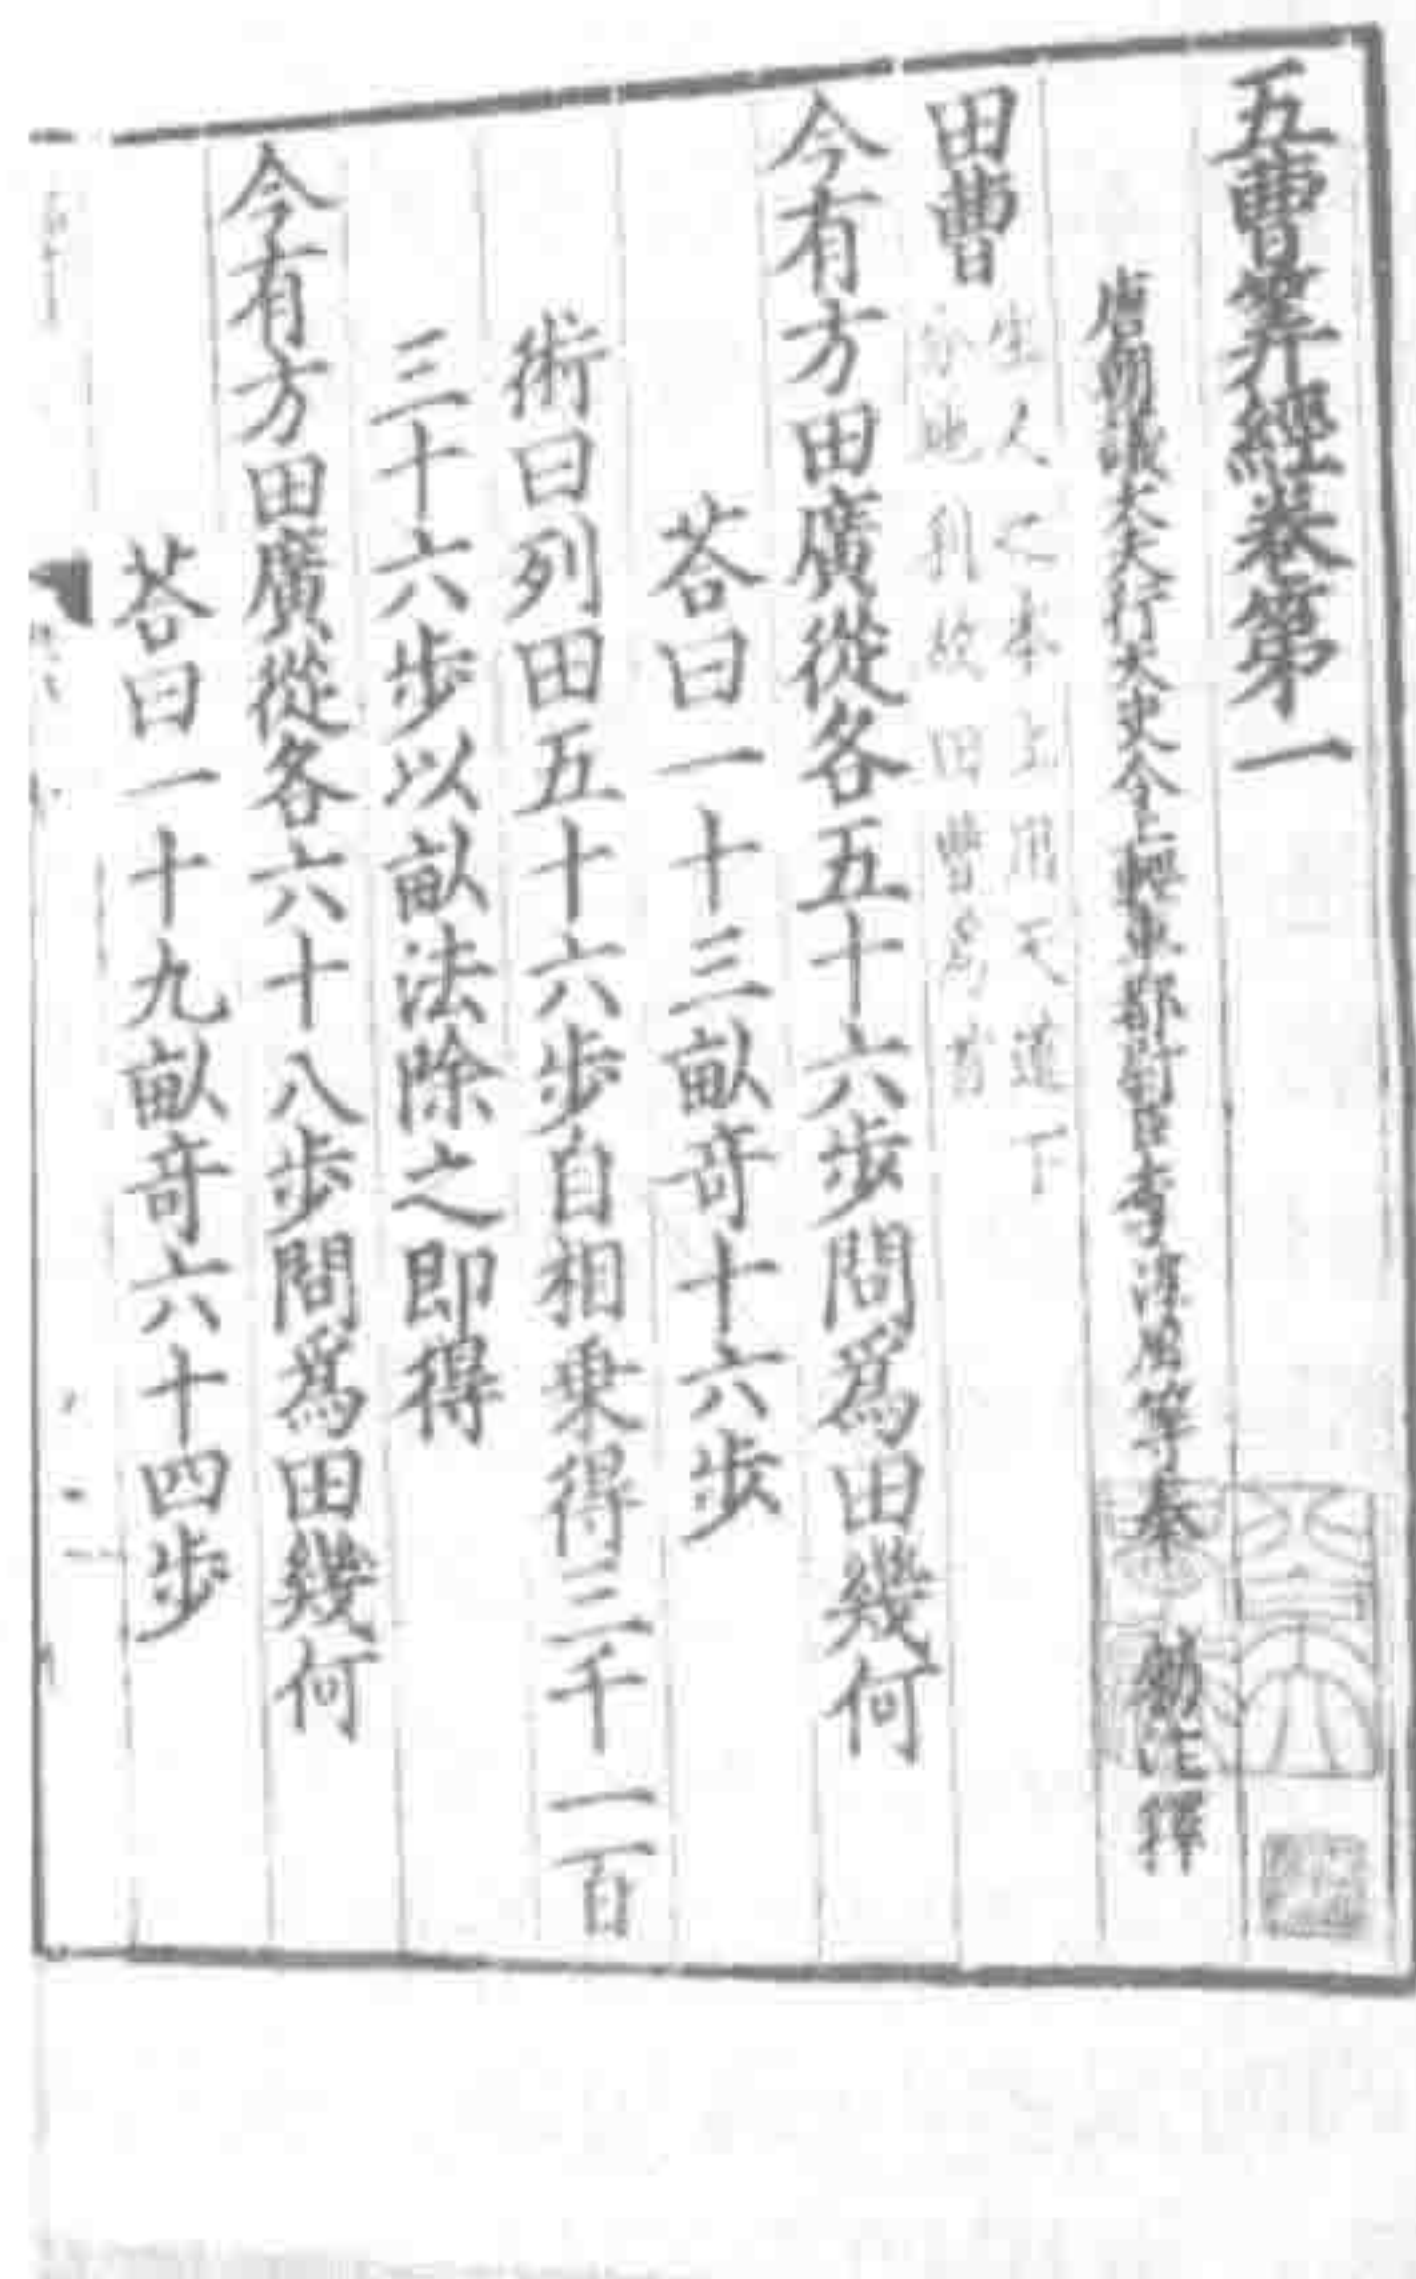 五曹筭經卷第一
唐朝議大夫行太史令上輕車都尉臣李淳風等奉 勑注釋
田曹
生人之本上用天道下
分地利故田曹爲首
今有方田廣從各五十六步問爲田幾何
荅曰一十三畝奇十六步
術曰列田五十六步自相乗得三千一百
三十六步以畝法除之即得
今有方田廣從各六十八步問爲田幾何
荅曰一十九畝奇六十四步